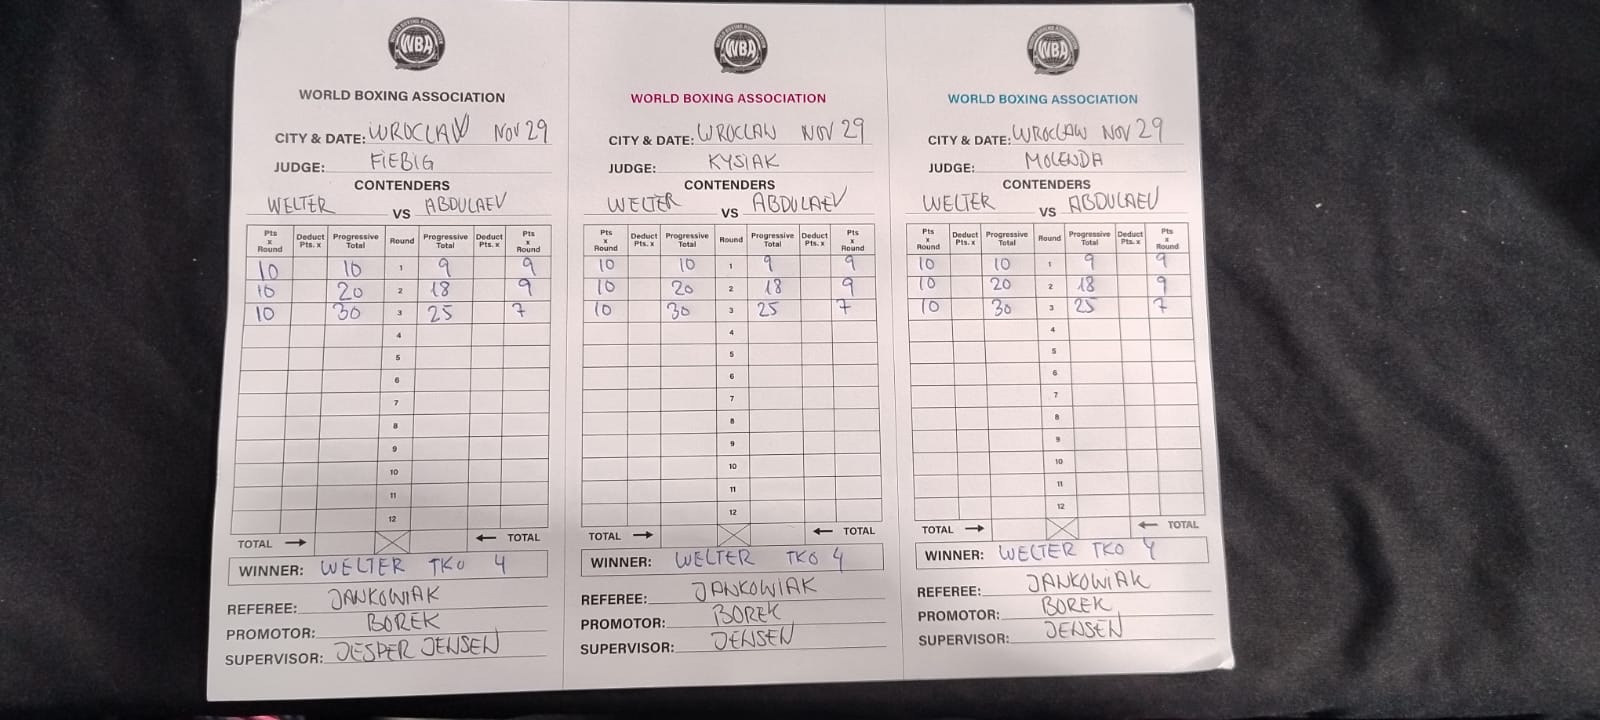 WBA
WORLD BOXING ASSOCIATION
CITY & DATE: WROCLAW NOV 29
JUDGE: FIEBIG
CONTENDERS
WELTER VS ABDULAEV
Pts x Round Deduct Pts. x Progressive Total Round Progressive Total Deduct Pts. x Pts x Round
10 10 1 9 9
10 20 2 18 9
10 30 3 25 7
4
5
6
7
8
9
10
11
12
TOTAL → ← TOTAL
WINNER: WELTER TKO 4
REFEREE: JANKOWIAK
PROMOTOR: BOREK
SUPERVISOR: JESPER JENSEN
WBA
WORLD BOXING ASSOCIATION
CITY & DATE: WROCLAW NOV 29
JUDGE: KYSIAK
CONTENDERS
WELTER VS ABDULAEV
Pts x Round Deduct Pts. x Progressive Total Round Progressive Total Deduct Pts. x Pts x Round
10 10 1 9 9
10 20 2 18 9
10 30 3 25 7
4
5
6
7
8
9
10
11
12
TOTAL → ← TOTAL
WINNER: WELTER TKO 4
REFEREE: JANKOWIAK
PROMOTOR: BOREK
SUPERVISOR: JENSEN
WBA
WORLD BOXING ASSOCIATION
CITY & DATE: WROCLAW NOV 29
JUDGE: MOLENDA
CONTENDERS
WELTER VS ABDULAEV
Pts x Round Deduct Pts. x Progressive Total Round Progressive Total Deduct Pts. x Pts x Round
10 10 1 9 9
10 20 2 18 9
10 30 3 25 7
4
5
6
7
8
9
10
11
12
TOTAL → ← TOTAL
WINNER: WELTER TKO 4
REFEREE: JANKOWIAK
PROMOTOR: BOREK
SUPERVISOR: JENSEN